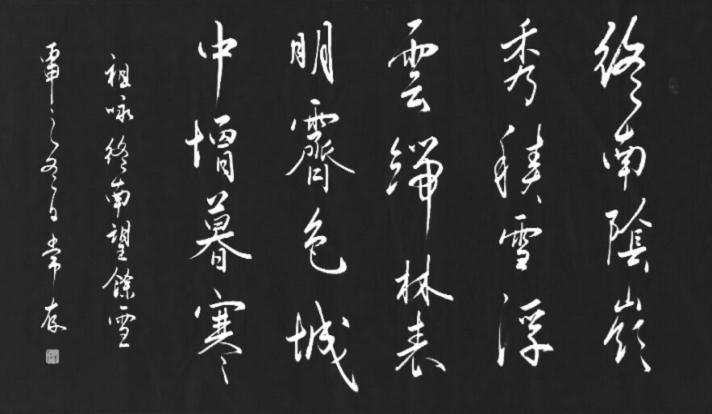 終南陰嶺
秀積雪浮
雲端林表
明霽色城
中增暮寒
祖咏終南望餘雪
丙申之冬日常存